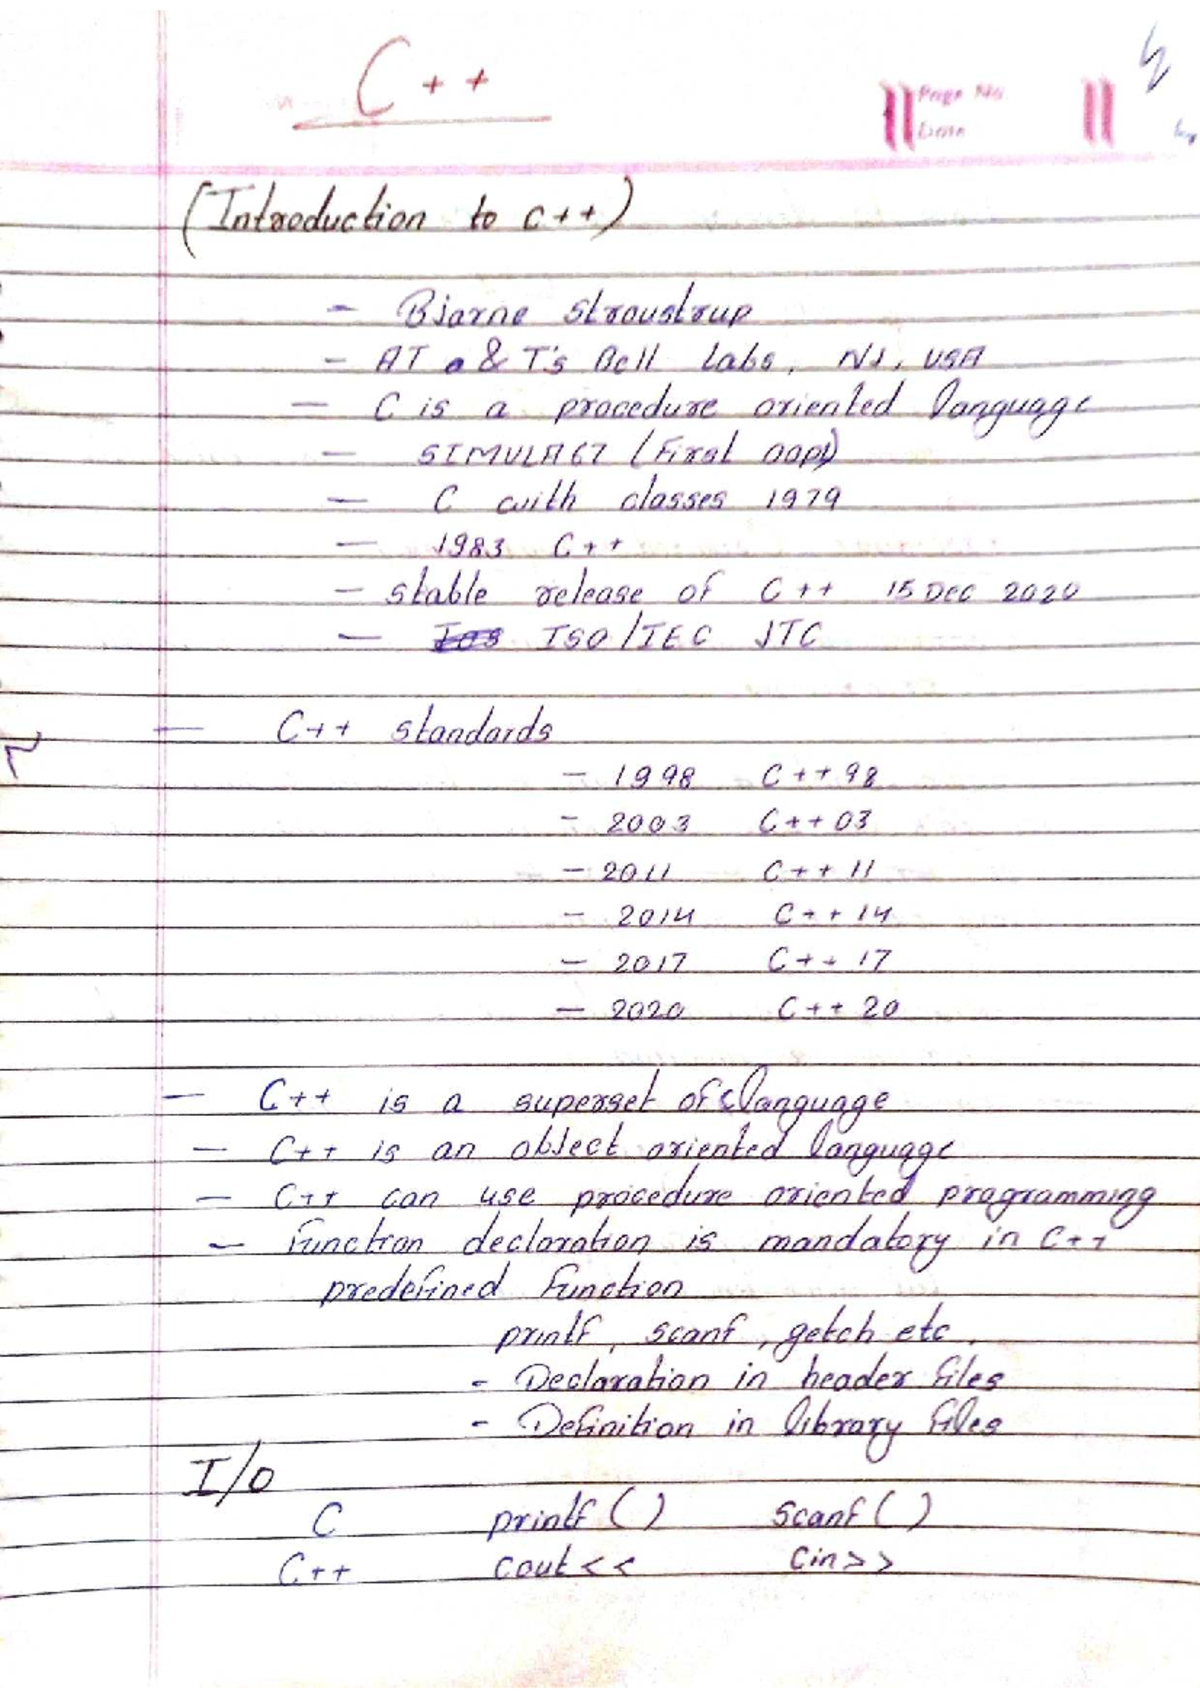 C++
Page No
Date
(Introduction to C++)
- Bjarne Stroustrup
- AT & T's Bell Labs, NJ, USA
- C is a procedure oriented language
- SIMULA67 (First oops)
- C with classes 1979
- 1983 C++
- stable release of C++ 15 Dec 2020
- Ios ISO/IEC JTC
- C++ standards
- 1998 C++98
- 2003 C++03
- 2011 C++11
- 2014 C++14
- 2017 C++17
- 2020 C++20
- C++ is a superset of C language
- C++ is an object oriented language
- C++ can use procedure oriented programming
- Function declaration is mandatory in C++
predefined function
printf, scanf, getch etc.
- Declaration in header files
- Definition in library files
I/O
C printf() scanf()
C++ cout<< cin>>